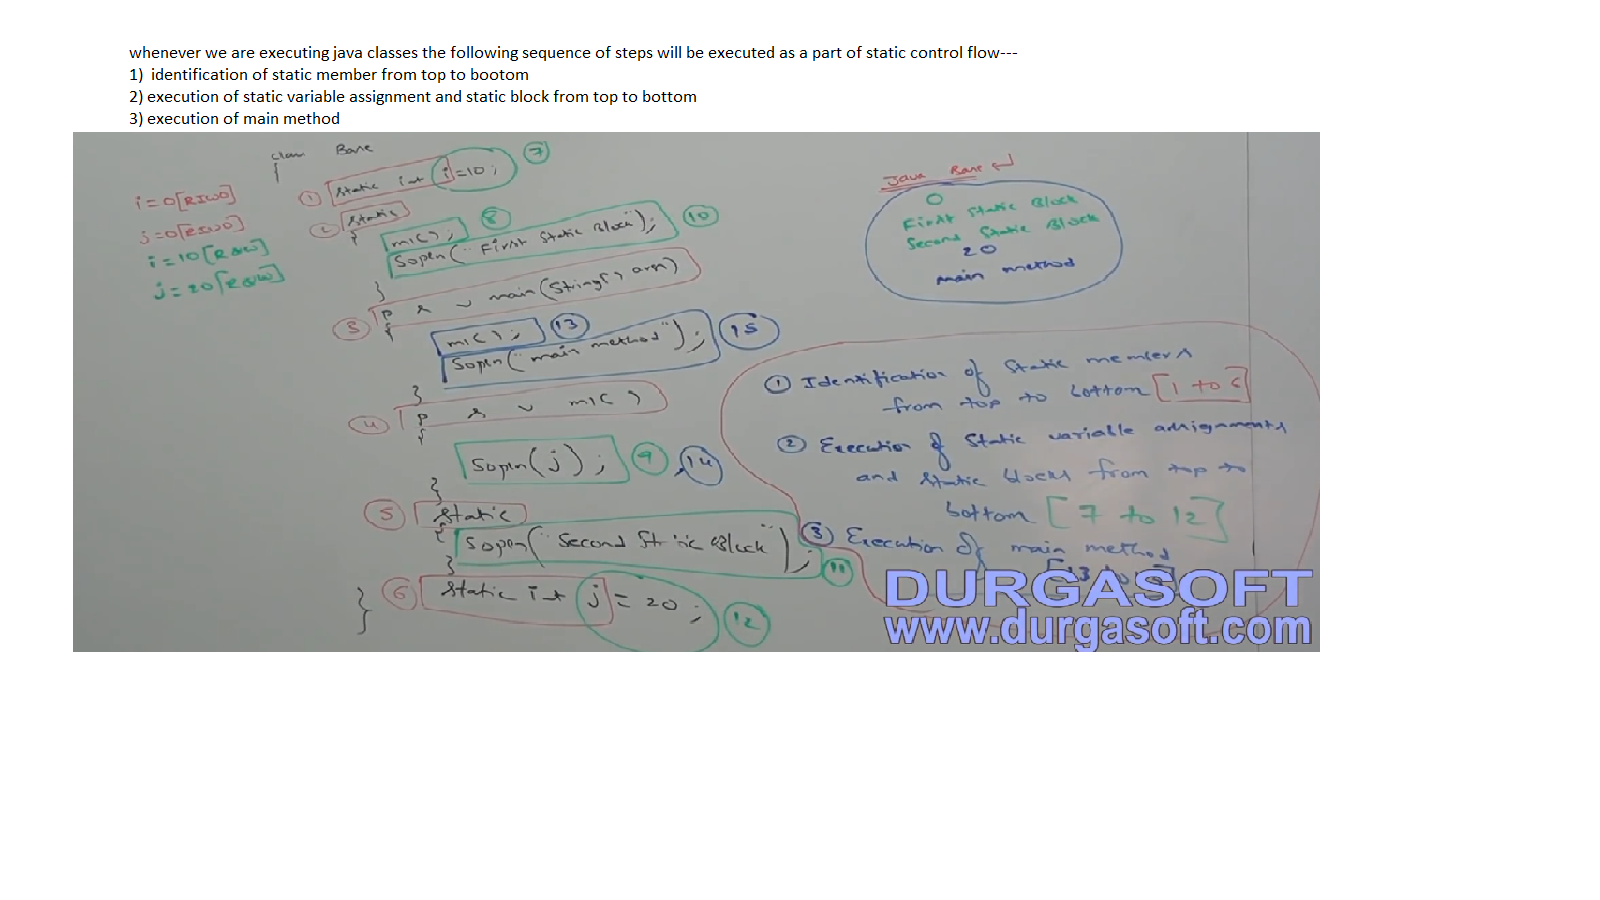 whenever we are executing java classes the following sequence of steps will be executed as a part of static control flow---
1) identification of static member from top to bootom
2) execution of static variable assignment and static block from top to bottom
3) execution of main method
class Base
{
① static int i=10; ⑦
② static
{
m1(); ⑧
Sopln("First Static Block"); ⑩
}
③ p s v main(String[] args)
{
m1(); ⑬
Sopln("main method"); ⑮
}
④ p s v m1()
{
Sopln(j); ⑨ ⑭
}
⑤ static
{
Sopln("Second Static Block"); ⑪
}
⑥ static int j = 20; ⑫
}
i=0[RIWO]
j=0[RIWO]
i=10[R&W]
j=20[R&W]
Java Base ↵
0
First Static Block
Second Static Block
20
main method
① Identification of static members
from top to bottom [1 to 6]
② Execution of static variable assignments
and static blocks from top to
bottom [7 to 12]
③ Execution of main method
DURGASOFT
www.durgasoft.com